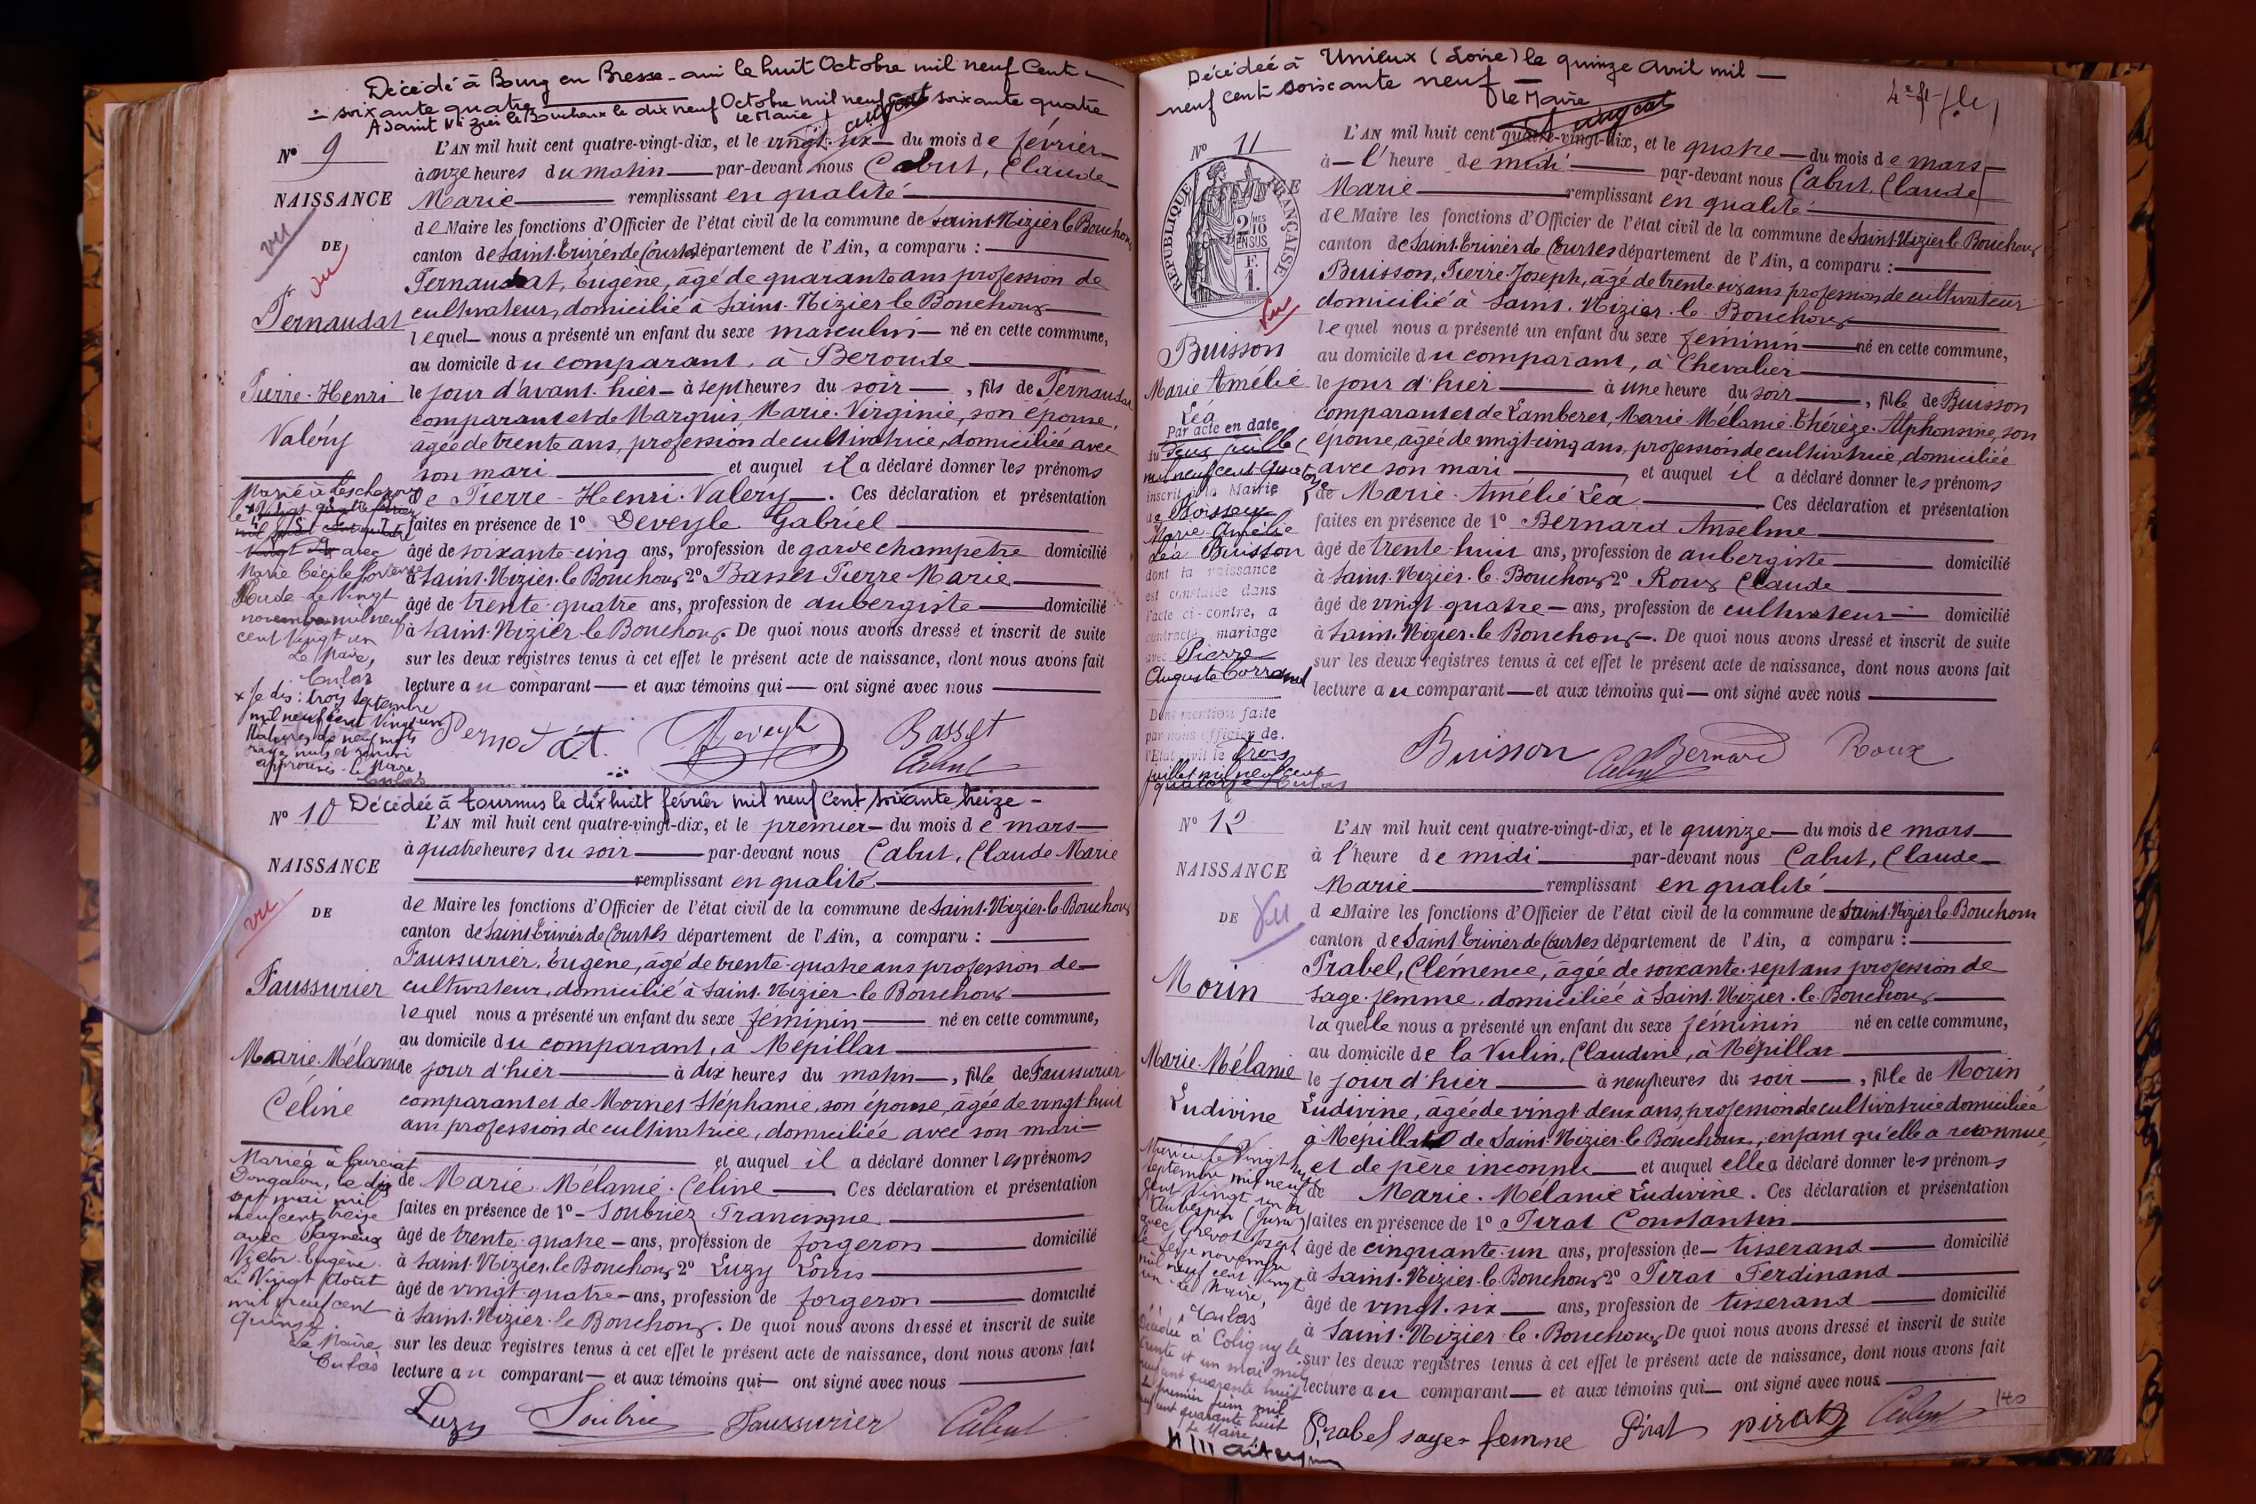 Décédé à Bourg en Bresse - ain le huit Octobre mil neuf Cent
soixante quatre
A Saint Nizier le Bouchoux le dix neuf Octobre mil neuf cent soixante quatre
le Maire
N° 9
NAISSANCE
DE
vu
vu
Pernaudat
Pierre-Henri
Valéry
L'AN mil huit cent quatre-vingt-dix, et le vingt-six du mois de février
à onze heures du matin par-devant nous Cabut, Claude
Marie remplissant en qualité
de Maire les fonctions d'Officier de l'état civil de la commune de Saint-Nizier le Bouchoux
canton de Saint-Trivier de Courtes département de l'Ain, a comparu :
Pernaudat, Eugène, âgé de quarante ans profession de
cultivateur, domicilié à Saint-Nizier le Bouchoux
lequel nous a présenté un enfant du sexe masculin né en cette commune,
au domicile du comparant, à Beroude
le jour d'avant-hier à sept heures du soir, fils de Pernaudat
comparant et de Marguis, Marie-Virginie, son épouse,
âgée de trente ans, profession de cultivatrice, domiciliée avec
son mari et auquel il a déclaré donner les prénoms
de Pierre-Henri-Valéry. Ces déclaration et présentation
faites en présence de 1° Deveyle Gabriel
âgé de soixante-cinq ans, profession de garde champêtre domicilié
à Saint-Nizier-le Bouchoux 2° Basset Pierre-Marie
âgé de trente-quatre ans, profession de aubergiste domicilié
à Saint-Nizier-le Bouchoux. De quoi nous avons dressé et inscrit de suite
sur les deux registres tenus à cet effet le présent acte de naissance, dont nous avons fait
lecture au comparant et aux témoins qui ont signé avec nous
Marié à Lescheroux
avec
Marie Cécile
Le vingt
novembre mil neuf
cent vingt un
Le Maire,
Culas
x Je dis : trois septembre
mil neuf cent vingt un
neuf mots
rayés nuls
approuvés - le Maire
Culas
Pernodat
Deveyle
Basset
Cabut
N° 10 Décédée à Tournus le dix huit février mil neuf Cent soixante treize -
NAISSANCE
DE
vu
Faussurier
Marie-Mélanie
Céline
L'AN mil huit cent quatre-vingt-dix, et le premier du mois de mars
à quatre heures du soir par-devant nous Cabut, Claude Marie
remplissant en qualité
de Maire les fonctions d'Officier de l'état civil de la commune de Saint-Nizier-le-Bouchoux
canton de Saint-Trivier de Courtes département de l'Ain, a comparu :
Faussurier, Eugène, âgé de trente-quatre ans profession de
cultivateur, domicilié à Saint-Nizier-le Bouchoux
lequel nous a présenté un enfant du sexe féminin né en cette commune,
au domicile du comparant, à Mépillat
le jour d'hier à dix heures du matin, fille de Faussurier
comparant et de Moinet Stéphanie, son épouse, âgée de vingt-huit
ans profession de cultivatrice, domiciliée avec son mari
et auquel il a déclaré donner les prénoms
de Marie-Mélanie-Céline Ces déclaration et présentation
faites en présence de 1° Soubrier Francisque
âgé de trente-quatre ans, profession de forgeron domicilié
à Saint-Nizier-le Bouchoux 2° Luzy Louis
âgé de vingt-quatre ans, profession de forgeron domicilié
à Saint-Nizier-le Bouchoux. De quoi nous avons dressé et inscrit de suite
sur les deux registres tenus à cet effet le présent acte de naissance, dont nous avons fait
lecture au comparant et aux témoins qui ont signé avec nous
Mariée à Curciat
Dongalon, le dix
sept mai mil
neuf cent treize
avec Pagneux
Victor Eugène.
Le Vingt Août
mil neuf cent
quinze.
Le Maire
Culas
Luzy
Soubrier
Faussurier
Cabut
Décédée à Unieux (Loire) le quinze avril mil
neuf cent soixante neuf
le Maire
N° 11
RÉPUBLIQUE FRANÇAISE
2/10
EN SUS
F.
1.
vu
Buisson
Marie Amélie
Léa
L'AN mil huit cent quatre-vingt-dix, et le quatre du mois de mars
à l'heure de midi par-devant nous Cabut, Claude
Marie remplissant en qualité
de Maire les fonctions d'Officier de l'état civil de la commune de Saint-Nizier le Bouchoux
canton de Saint-Trivier de Courtes département de l'Ain, a comparu :
Buisson, Pierre-Joseph, âgé de trente six ans profession de cultivateur
domicilié à Saint-Nizier-le-Bouchoux
lequel nous a présenté un enfant du sexe féminin né en cette commune,
au domicile du comparant, à Chevalier
le jour d'hier à une heure du soir, fille de Buisson
comparant et de Lamberet, Marie Mélanie Thérèze-Alphonsine, son
épouse, âgée de vingt-cinq ans, profession de cultivatrice, domiciliée
avec son mari et auquel il a déclaré donner les prénoms
de Marie-Amélie Léa Ces déclaration et présentation
faites en présence de 1° Bernard Anselme
âgé de trente-huit ans, profession de aubergiste domicilié
à Saint-Nizier-le-Bouchoux 2° Roux Claude
âgé de vingt-quatre ans, profession de cultivateur domicilié
à Saint-Nizier-le Bouchoux. De quoi nous avons dressé et inscrit de suite
sur les deux registres tenus à cet effet le présent acte de naissance, dont nous avons fait
lecture au comparant et aux témoins qui ont signé avec nous
Par acte en date
du Deux juillet
mil neuf cent quatorze
inscrit à la Mairie
de Boissey
Marie Amélie
Léa Buisson
dont la naissance
est constatée dans
l'acte ci-contre, a
contracté mariage
avec Pierre
Auguste
Dont mention faite
par nous officier de
l'Etat civil le trois
juillet mil neuf cent
quatorze Culas
Buisson
Bernard
Roux
Cabut
N° 12
NAISSANCE
DE
Vu
Morin
Marie-Mélanie
Ludivine
L'AN mil huit cent quatre-vingt-dix, et le quinze du mois de mars
à l'heure de midi par-devant nous Cabut, Claude
Marie remplissant en qualité
de Maire les fonctions d'Officier de l'état civil de la commune de Saint-Nizier le Bouchoux
canton de Saint Trivier de Courtes département de l'Ain, a comparu :
Prabel, Clémence, âgée de soixante-sept ans profession de
sage-femme, domiciliée à Saint-Nizier-le-Bouchoux
laquelle nous a présenté un enfant du sexe féminin né en cette commune,
au domicile de la Vulin, Claudine, à Mépillat
le jour d'hier à neuf heures du soir, fille de Morin
Ludivine, âgée de vingt-deux ans, profession de cultivatrice domiciliée
à Mépillat de Saint-Nizier-le Bouchoux, enfant qu'elle a reconnue,
et de père inconnu et auquel elle a déclaré donner les prénoms
de Marie-Mélanie Ludivine. Ces déclaration et présentation
faites en présence de 1° Pirat Constantin
âgé de cinquante-un ans, profession de tisserand domicilié
à Saint-Nizier-le Bouchoux 2° Pirat Ferdinand
âgé de vingt-six ans, profession de tisserand domicilié
à Saint-Nizier-le-Bouchoux De quoi nous avons dressé et inscrit de suite
sur les deux registres tenus à cet effet le présent acte de naissance, dont nous avons fait
lecture au comparant et aux témoins qui ont signé avec nous
Mariée le Vingt
septembre mil neuf
cent vingt un à
l'Aubespin (Jura)
avec Grevot Joseph
le seize novembre
mil neuf cent vingt
un Le Maire,
Culas
Décédée à Coligny le
trente et un mai mil
neuf cent quarante huit
Le premier juin mil
neuf cent quarante huit
Le Maire,
Prabel sage-femme
Pirat
pirat
Cabut
140